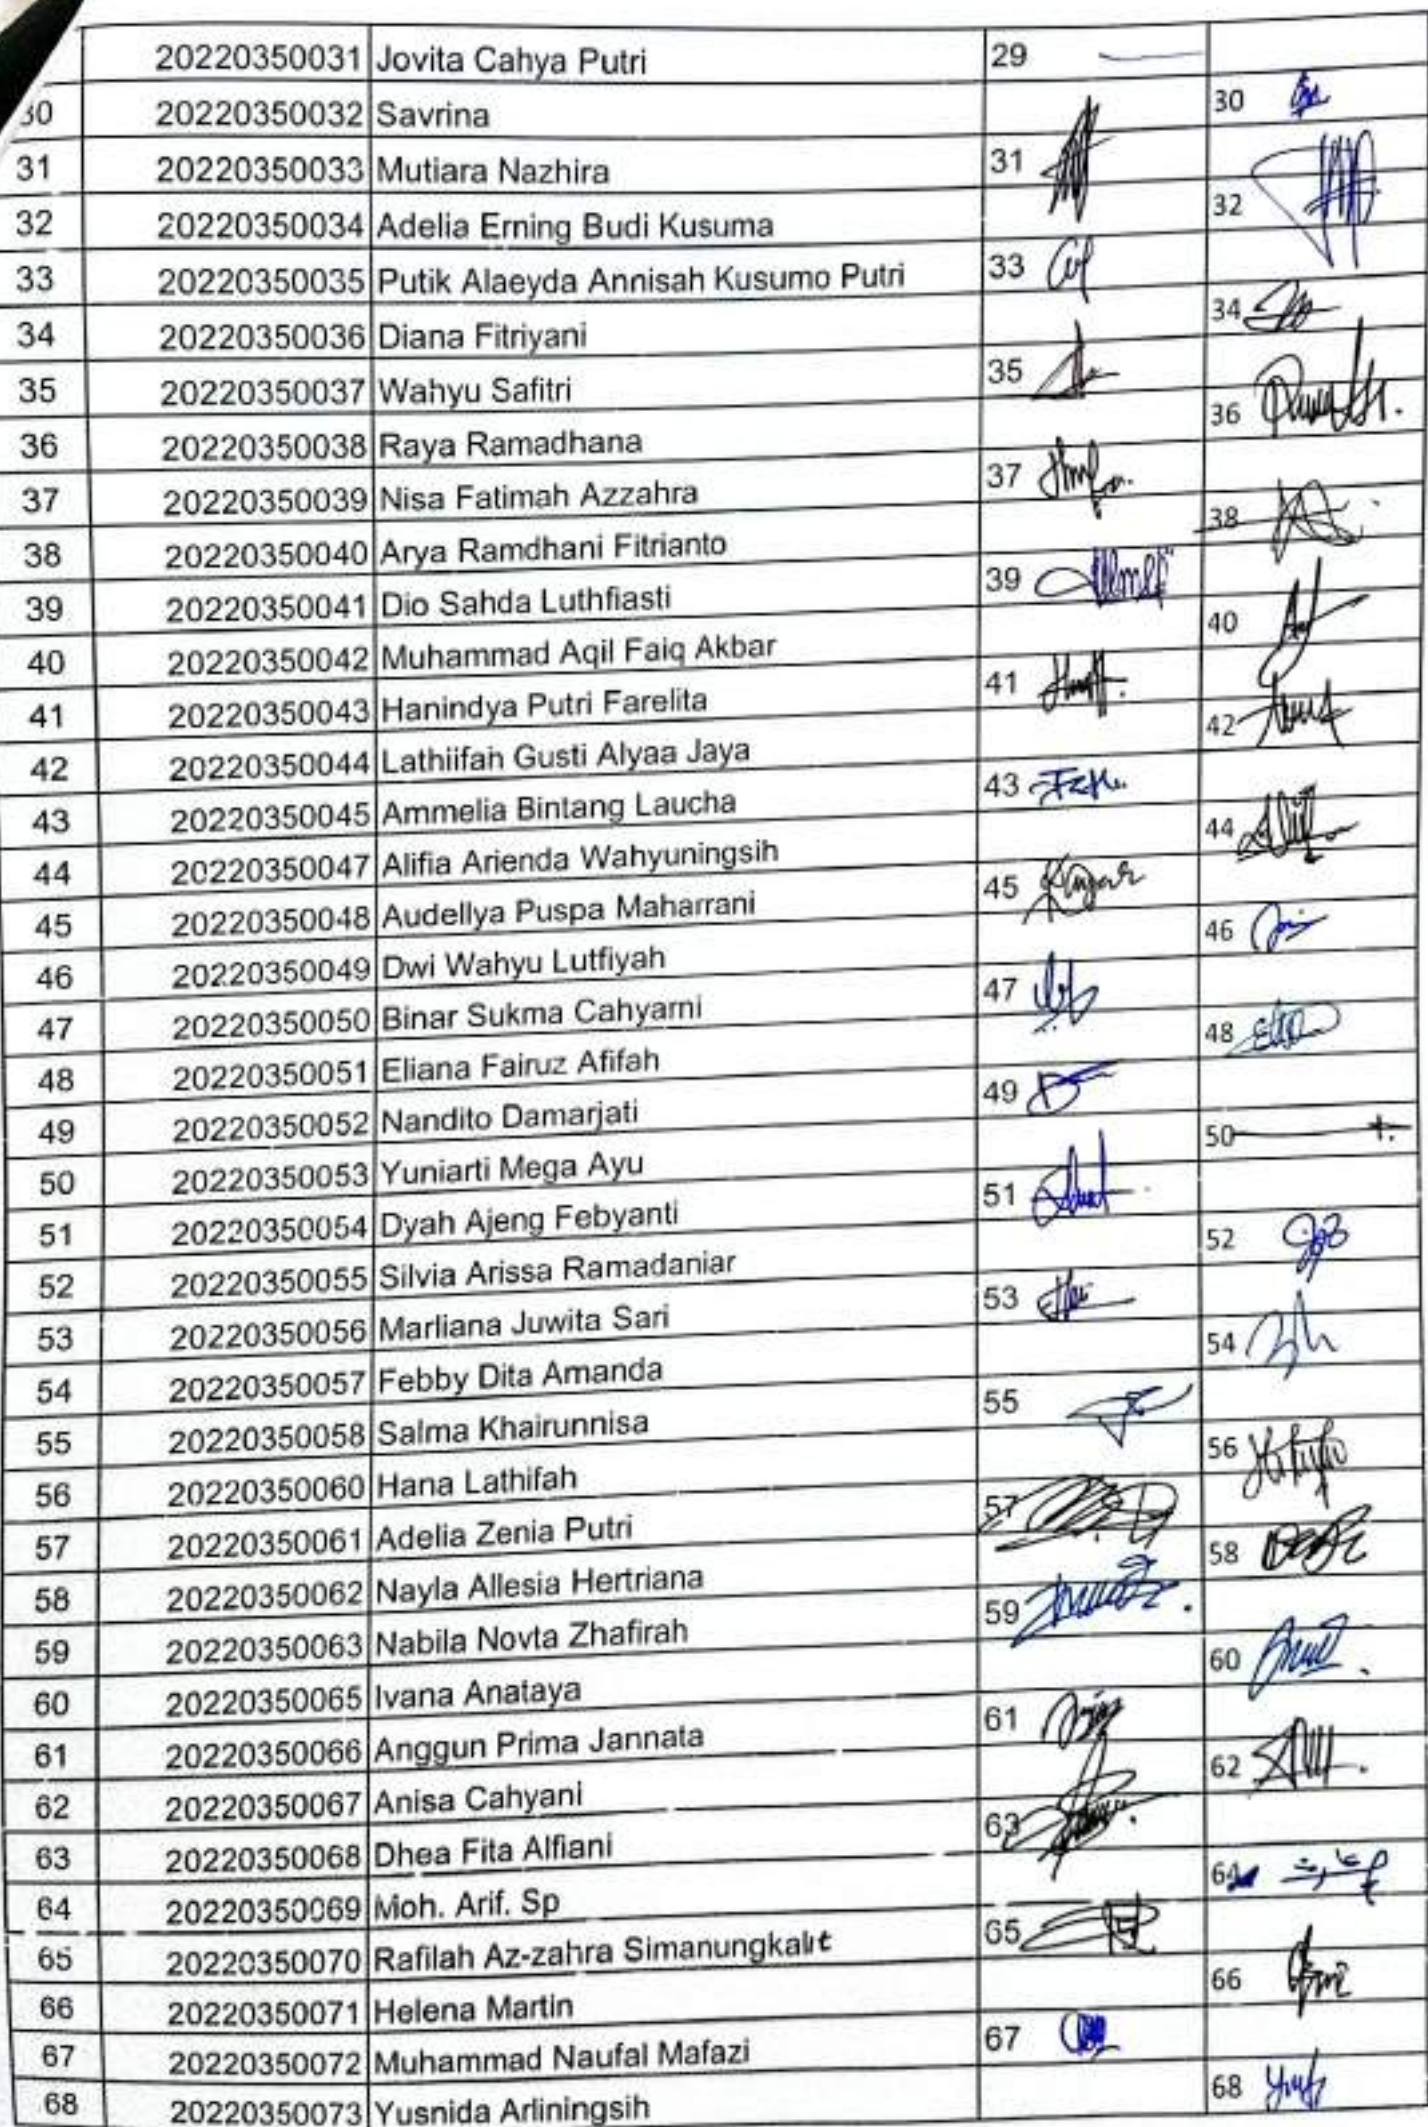 20220350031 Jovita Cahya Putri 29
30 20220350032 Savrina 30
31 20220350033 Mutiara Nazhira 31
32 20220350034 Adelia Erning Budi Kusuma 32
33 20220350035 Putik Alaeyda Annisah Kusumo Putri 33
34 20220350036 Diana Fitriyani 34
35 20220350037 Wahyu Safitri 35
36 20220350038 Raya Ramadhana 36
37 20220350039 Nisa Fatimah Azzahra 37
38 20220350040 Arya Ramdhani Fitrianto 38
39 20220350041 Dio Sahda Luthfiasti 39
40 20220350042 Muhammad Aqil Faiq Akbar 40
41 20220350043 Hanindya Putri Farelita 41
42 20220350044 Lathiifah Gusti Alyaa Jaya 42
43 20220350045 Ammelia Bintang Laucha 43
44 20220350047 Alifia Arienda Wahyuningsih 44
45 20220350048 Audellya Puspa Maharrani 45
46 20220350049 Dwi Wahyu Lutfiyah 46
47 20220350050 Binar Sukma Cahyarni 47
48 20220350051 Eliana Fairuz Afifah 48
49 20220350052 Nandito Damarjati 49
50 20220350053 Yuniarti Mega Ayu 50
51 20220350054 Dyah Ajeng Febyanti 51
52 20220350055 Silvia Arissa Ramadaniar 52
53 20220350056 Marliana Juwita Sari 53
54 20220350057 Febby Dita Amanda 54
55 20220350058 Salma Khairunnisa 55
56 20220350060 Hana Lathifah 56
57 20220350061 Adelia Zenia Putri 57
58 20220350062 Nayla Allesia Hertriana 58
59 20220350063 Nabila Novta Zhafirah 59
60 20220350065 Ivana Anataya 60
61 20220350066 Anggun Prima Jannata 61
62 20220350067 Anisa Cahyani 62
63 20220350068 Dhea Fita Alfiani 63
64 20220350069 Moh. Arif. Sp 64
65 20220350070 Rafilah Az-zahra Simanungkalit 65
66 20220350071 Helena Martin 66
67 20220350072 Muhammad Naufal Mafazi 67
68 20220350073 Yusnida Arliningsih 68